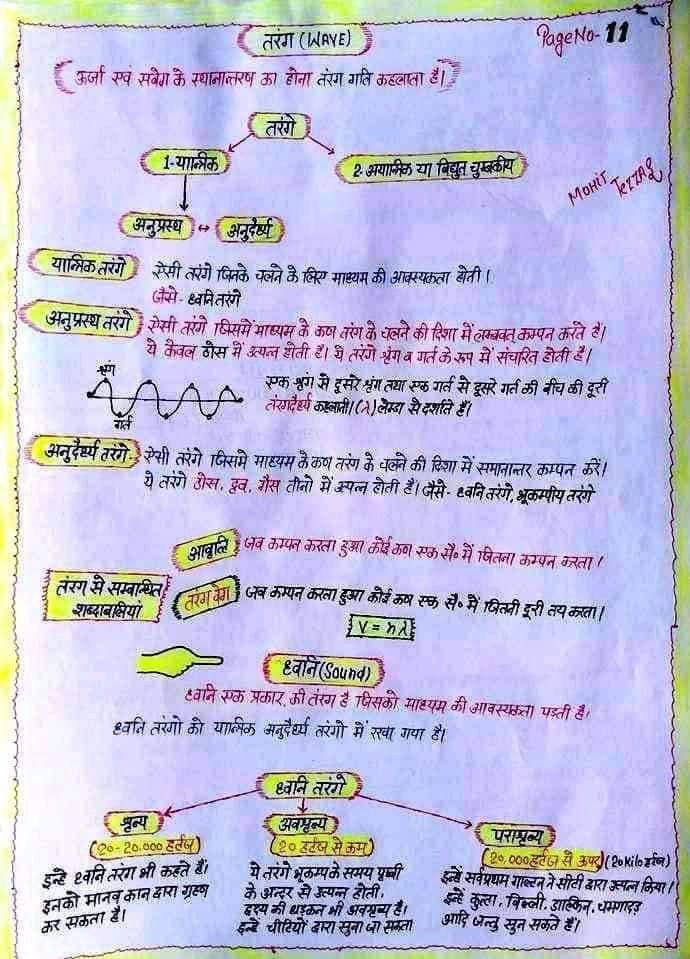 तरंग (WAVE)
Page No- 11
ऊर्जा एवं संवेग के स्थानान्तरण का होना तरंग गति कहलाता है।
तरंगे
1-यान्त्रिक
2-अयान्त्रिक या विद्युत चुम्बकीय
MOHIT
अनुप्रस्थ ↔ अनुदैर्ध्य
यान्त्रिक तरंगे
ऐसी तरंगे जिनके चलने के लिए माध्यम की आवश्यकता होती।
जैसे - ध्वनि तरंगे
अनुप्रस्थ तरंगे
ऐसी तरंगे जिसमें माध्यम के कण तरंग के चलने की दिशा में लम्बवत् कम्पन करते है।
ये केवल ठोस में उत्पन्न होती है। ये तरंगे श्रृंग व गर्त के रूप में संचारित होती है।
श्रृंग
गर्त
एक श्रृंग से दुसरे श्रृंग तथा एक गर्त से दूसरे गर्त की बीच की दूरी
तंरगदैर्ध्य कहलाती। (λ) लेम्डा से दर्शाते हैं।
अनुदैर्ध्य तरंगे-
ऐसी तरंगे जिसमे माध्यम के कण तरंग के चलने की दिशा में समानान्तर कम्पन करें।
ये तरंगे ठोस, द्रव, गैस तीनो में उत्पन्न होती है। जैसे - ध्वनि तरंगे, भूकम्पीय तरंगे
आवृत्ति
जब कम्पन करता हुआ कोई कण एक सै० में जितना कम्पन करता।
तंरग से सम्बान्धित
शब्दावालियां
तरंग वेग
जब कम्पन करता हुआ कोई कण एक सै० में जितनी दूरी तय करता।
V = nλ
ध्वनि (Sound)
ध्वनि एक प्रकार, की तंरग है जिसको माध्यम की आवश्यकता पड़ती है।
ध्वनि तंरगो को यान्त्रिक अनुदैर्ध्य तरंगो में रखा गया है।
ध्वनि तरंगे
श्रृव्य
अवश्रृव्य
पराश्रृव्य
(20-20.000 हर्टज)
(20 हर्टज से कम)
(20,000 हर्टज से ऊपर) (20 Kilo हर्टज)
इन्हे ध्वनि तंरग भी कहते हैं।
इनको मानव कान द्वारा ग्रहण
कर सकता है।
ये तंरगे भूकम्प के समय पृथ्वी
के अन्दर से उत्पन्न होती,
हृदय की धड़कन भी अवश्रृव्य है।
इन्हे चीटियों द्वारा सुना जा सकता
इन्हें सर्वप्रथम गाल्टन ने सीटी द्वारा उत्पन्न किया।
इन्हें कुत्ता, बिल्ली, डाल्फिन, चमगादड़
आदि जन्तु सुन सकते हैं।